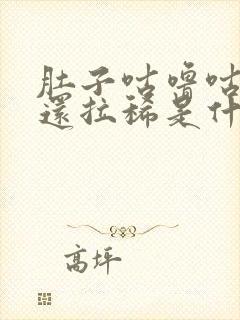 肚子咕嚕咕
還拉稀是什
高坪